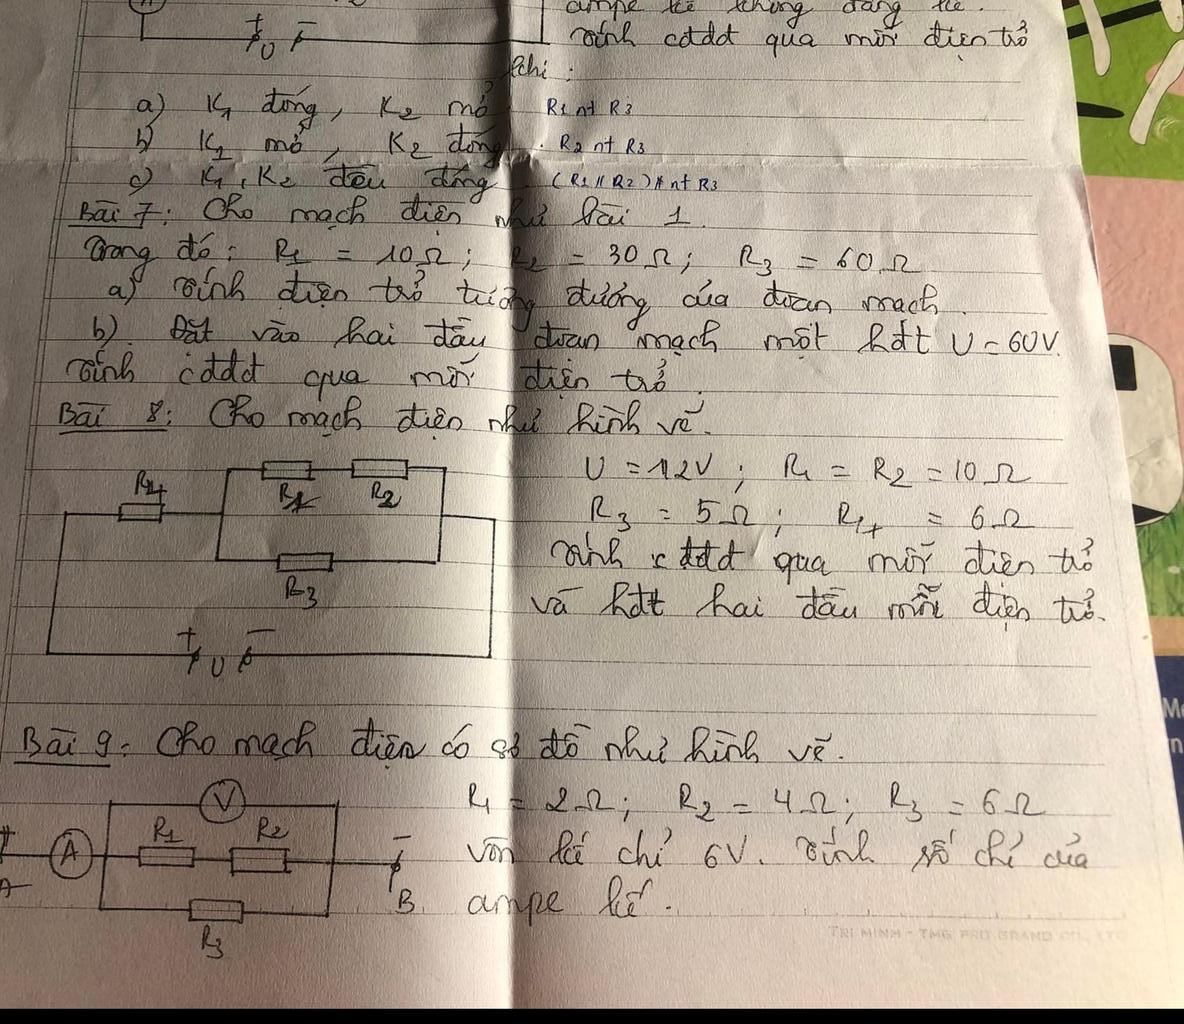 ampe kế không đáng kể.
tính cđdđ qua mỗi điện trở
+ U −
khi :
a) K1 đóng, K2 mở R1 nt R3
b) K1 mở, K2 đóng. R2 nt R3
c) K1, K2 đều đóng (R1 // R2) nt R3
Bài 7: Cho mạch điện như bài 1.
trong đó: R1 = 10Ω; R2 = 30Ω; R3 = 60Ω
a) tính điện trở tương đương của đoạn mạch.
b). Đặt vào hai đầu đoạn mạch một hđt U = 60V.
tính cđdđ qua mỗi điện trở.
Bài 8: Cho mạch điện như hình vẽ.
U = 12V; R1 = R2 = 10Ω
R4 R1 R2
R3 = 5Ω; R4 = 6Ω
tính cđdđ qua mỗi điện trở
R3
và hđt hai đầu mỗi điện trở.
+ U −
Bài 9: Cho mạch điện có sơ đồ như hình vẽ.
V
R1 = 2Ω; R2 = 4Ω; R3 = 6Ω
R1 R2
+ A −
vôn kế chỉ 6V. tính số chỉ của
A B.
ampe kế.
R3
TRI MINH - TMG PRO BRAND CO., LTD